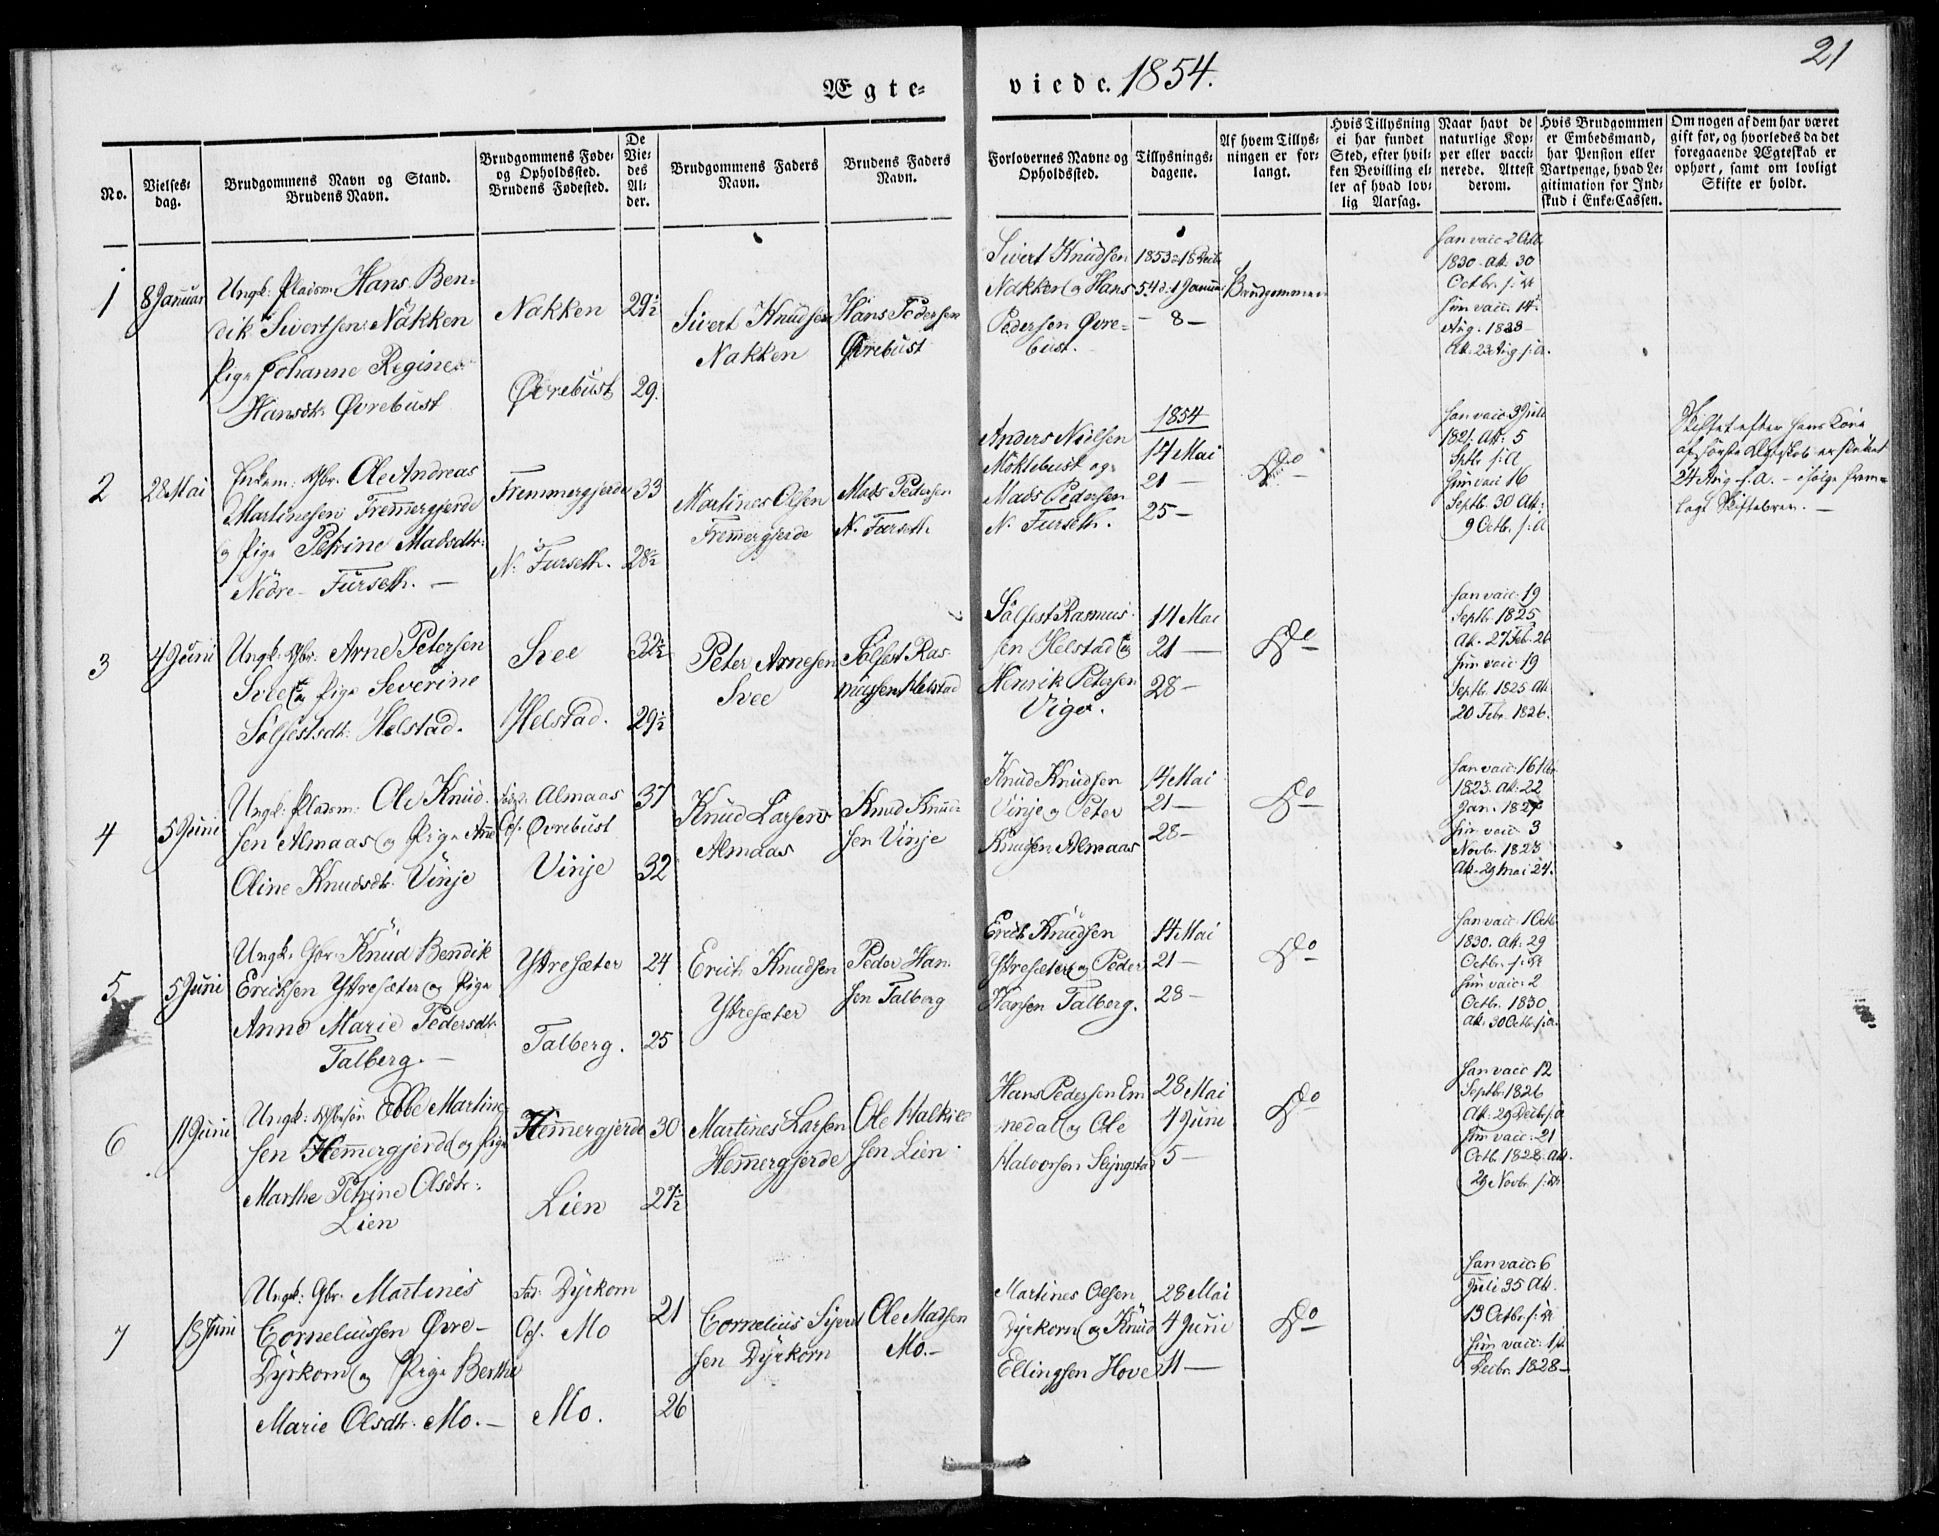 21
Ægte= viede. 1854.
No.
Vielses=
dag.
Brudgommens Navn og Stand.
Brudens Navn.
Brudgommens Føde=
og Opholdssted.
Brudens Fødested.
De
Vie=
des
Al=
der.
Brudgommens Faders
Navn.
Brudens Faders
Navn.
Forlovernes Navne og
Opholdssted.
Tillysnings=
dagene.
Af hvem Tillys=
ningen er for=
langt.
Hvis Tillysning
ei har fundet
Sted, efter hvil=
ken Bevilling el=
ler af hvad lov=
lig Aarsag.
Naar havt de
naturlige Kop=
per eller vacci=
nerede. Attest
derom.
Hvis Brudgommen
er Embedsmand,
har Pension eller
Vartpenge, hvad Le=
gitimation for Ind=
skud i Enke=Cassen.
Om nogen af dem har været
gift før, og hvorledes da det
foregaaende Ægteskab er
ophørt, samt om lovligt
Skifte er holdt.
1
8 Januar
Ungk: Pladsm: Hans Ben=
dik Sivertsen Nakken
Pige Johanne Regine
Hansdtr Øvrebust
Nakken
Øvrebust
29½
29.
Sivert Knudsen
Nakken
Hans Pedersen
Øvrebust
Sivert Knudsen
Nakken og Hans
Pedersen Øvre=
bust.
1853 18 Decbr
54 d: 1 Januar
– 8 –
Brudgommen
han vacc 2 Octb.
1830 – Att. 30
Octbr. s: A
hun vacc. 14
Aug. 1828 –
Att. 23 Aug s: A.
2
28 Mai
Enkem: Gbr. Ole Andreas
Martinesen Fremmergjerde
og Pige Petrine Madsdtr.
Nedre Furseth. –
Fremmergjerde
N. Furseth.
33
28½
Martines Olsen
Fremmergjerde
Mads Pedersen
N. Furseth
Anders Nielsen
Moklebust og
Mads Pedersen
N. Furseth.
1854
14 Mai
21 –
25 –
Do
han vacc 3 Juli
1821. Att. 5
Sptb. s: A
hun vacc 16
Septb. 30 Att.
9 Octb. s: A
Skiftet efter hans Kone
af første Ægteskab er sluttet
24 Aug. f. A. – ifølge frem=
lagt Skiftebrev. –
3
4 Juni
Ungk: Gbr. Arne Petersen
Svee og Pige Severine
Sølfestsdt: Helstad.
Svee
Helstad.
32½
29½
Peter Arnesen
Svee
Sølfest Ras=
mussen Helstad
Sølfest Rasmus=
sen Helstad og
Henrik Petersen
Vige.
14 Mai
21 –
28 –
Do
han vacc. 19
Septb. 1825
Att. 27 Feb. 26
hun vacc. 19
Septbr. 1825 Att.
20 Febr. 1826.
4
5 Juni
Ungk: Pladsm: Ole Knud=
sen Almaas og Pige Ane
Oline Knudsdtr. Vinje
Født: Almaas
Oph. Øvrebust
Vinje
37
32
Knud Larsen
Almaas
Knud Knud=
sen Vinje
Knud Knudsen
Vinje og Peter
Knudsen Almaas
14 Mai
21 –
28 –
Do
1823. Att. 22
hun vacc. 3
Novb. 1823
Att. 29 Mai 24.
5
5 Juni
Ungk: Gbr. Knud Bendik
Ericksen Ystresæter og Pige
Anne Marie Pedersdtr
Talberg. –
Ystresæter
Talberg.
24
25
Erich Knudsen
Ystresæter
Peder Han=
sen Talberg
Erich Knudsen
Ystresæter og Peder
Hansen Talberg.
14 Mai
21 –
28 –
Do
han vacc. 1 Octb
1830. Att. 29
Octbr. s: A
hun vacc. 2
Octbr. 1830
Att. 30 Octb. s: A.
6
11 Juni
Ungk: Ebbe Martine=
sen Hemmergjerde og Pige
Marthe Petrine Olsdtr.
Lien
Hemmergjerde
Lien
30
27½
Martines Larsen
Hemmergjerde
Ole Halvor=
sen Lien
Hans Pedersen Em=
nedal og Ole
Halvorsen Slyngstad
28 Mai
4 Juni
5 –
Do
han vacc 12
Septbr. 1826
Att. 29 Decb. s: A
hun vacc. 21
Octb. 1828. Att.
29 Novbr. s: A
7
18 Juni
Ungk: Gbr. Martinus
Corneliussen Øvre=
Dyrkorn og Pige Berthe
Marie Olsdtr. Mo. –
Før. Dyrkorn
Oph. Mo
Mo.
21
26
Cornelius Sjurd=
sen Dyrkorn
Ole Madsen
Mo. –
Martines Olsen
Dyrkorn og Knud
Ellingsen Hove
28 Mai
4 Juni
11 –
Do
han vacc. 6
Juli 35 Att.
13 Octbr. s: A
hun vacc. 14
Decbr. 1828 –